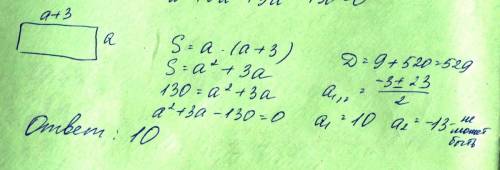 a+3
a
S = a · (a+3)
S = a² + 3a
130 = a² + 3a
a² + 3a − 130 = 0
D = 9 + 520 = 529
a₁,₂ = (−3 ± 23)/2
a₁ = 10 a₂ = −13 − не может быть
Ответ: 10